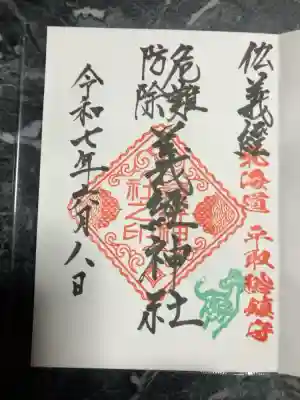 仏義經
北海道 平取総鎮守
危難
防除
義經神社
神社之印
令和七年六月八日